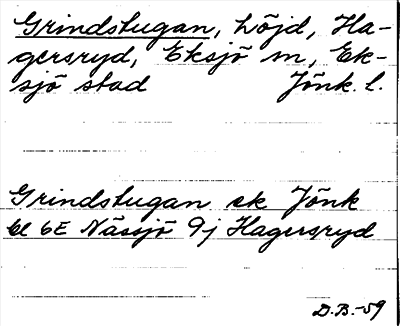 Grindstugan, höjd, Ha-
gersryd, Eksjö m, Ek-
sjö stad Jönk. l.
Grindstugan ek Jönk
bl 6E Nässjö 9j Hagersryd
D.B.-59